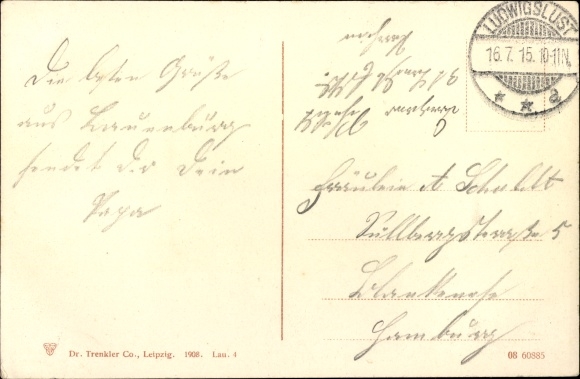 Die besten Grüße
aus Lauenburg
sendet dir Dein
Papa
LUDWIGSLUST
16.7.15. 10-11N.
* * a
Fräulein A Scholdt
Süllbergstraße 5
Blankenese
Hamburg
Dr. Trenkler Co., Leipzig. 1908. Lau. 4
08 60885